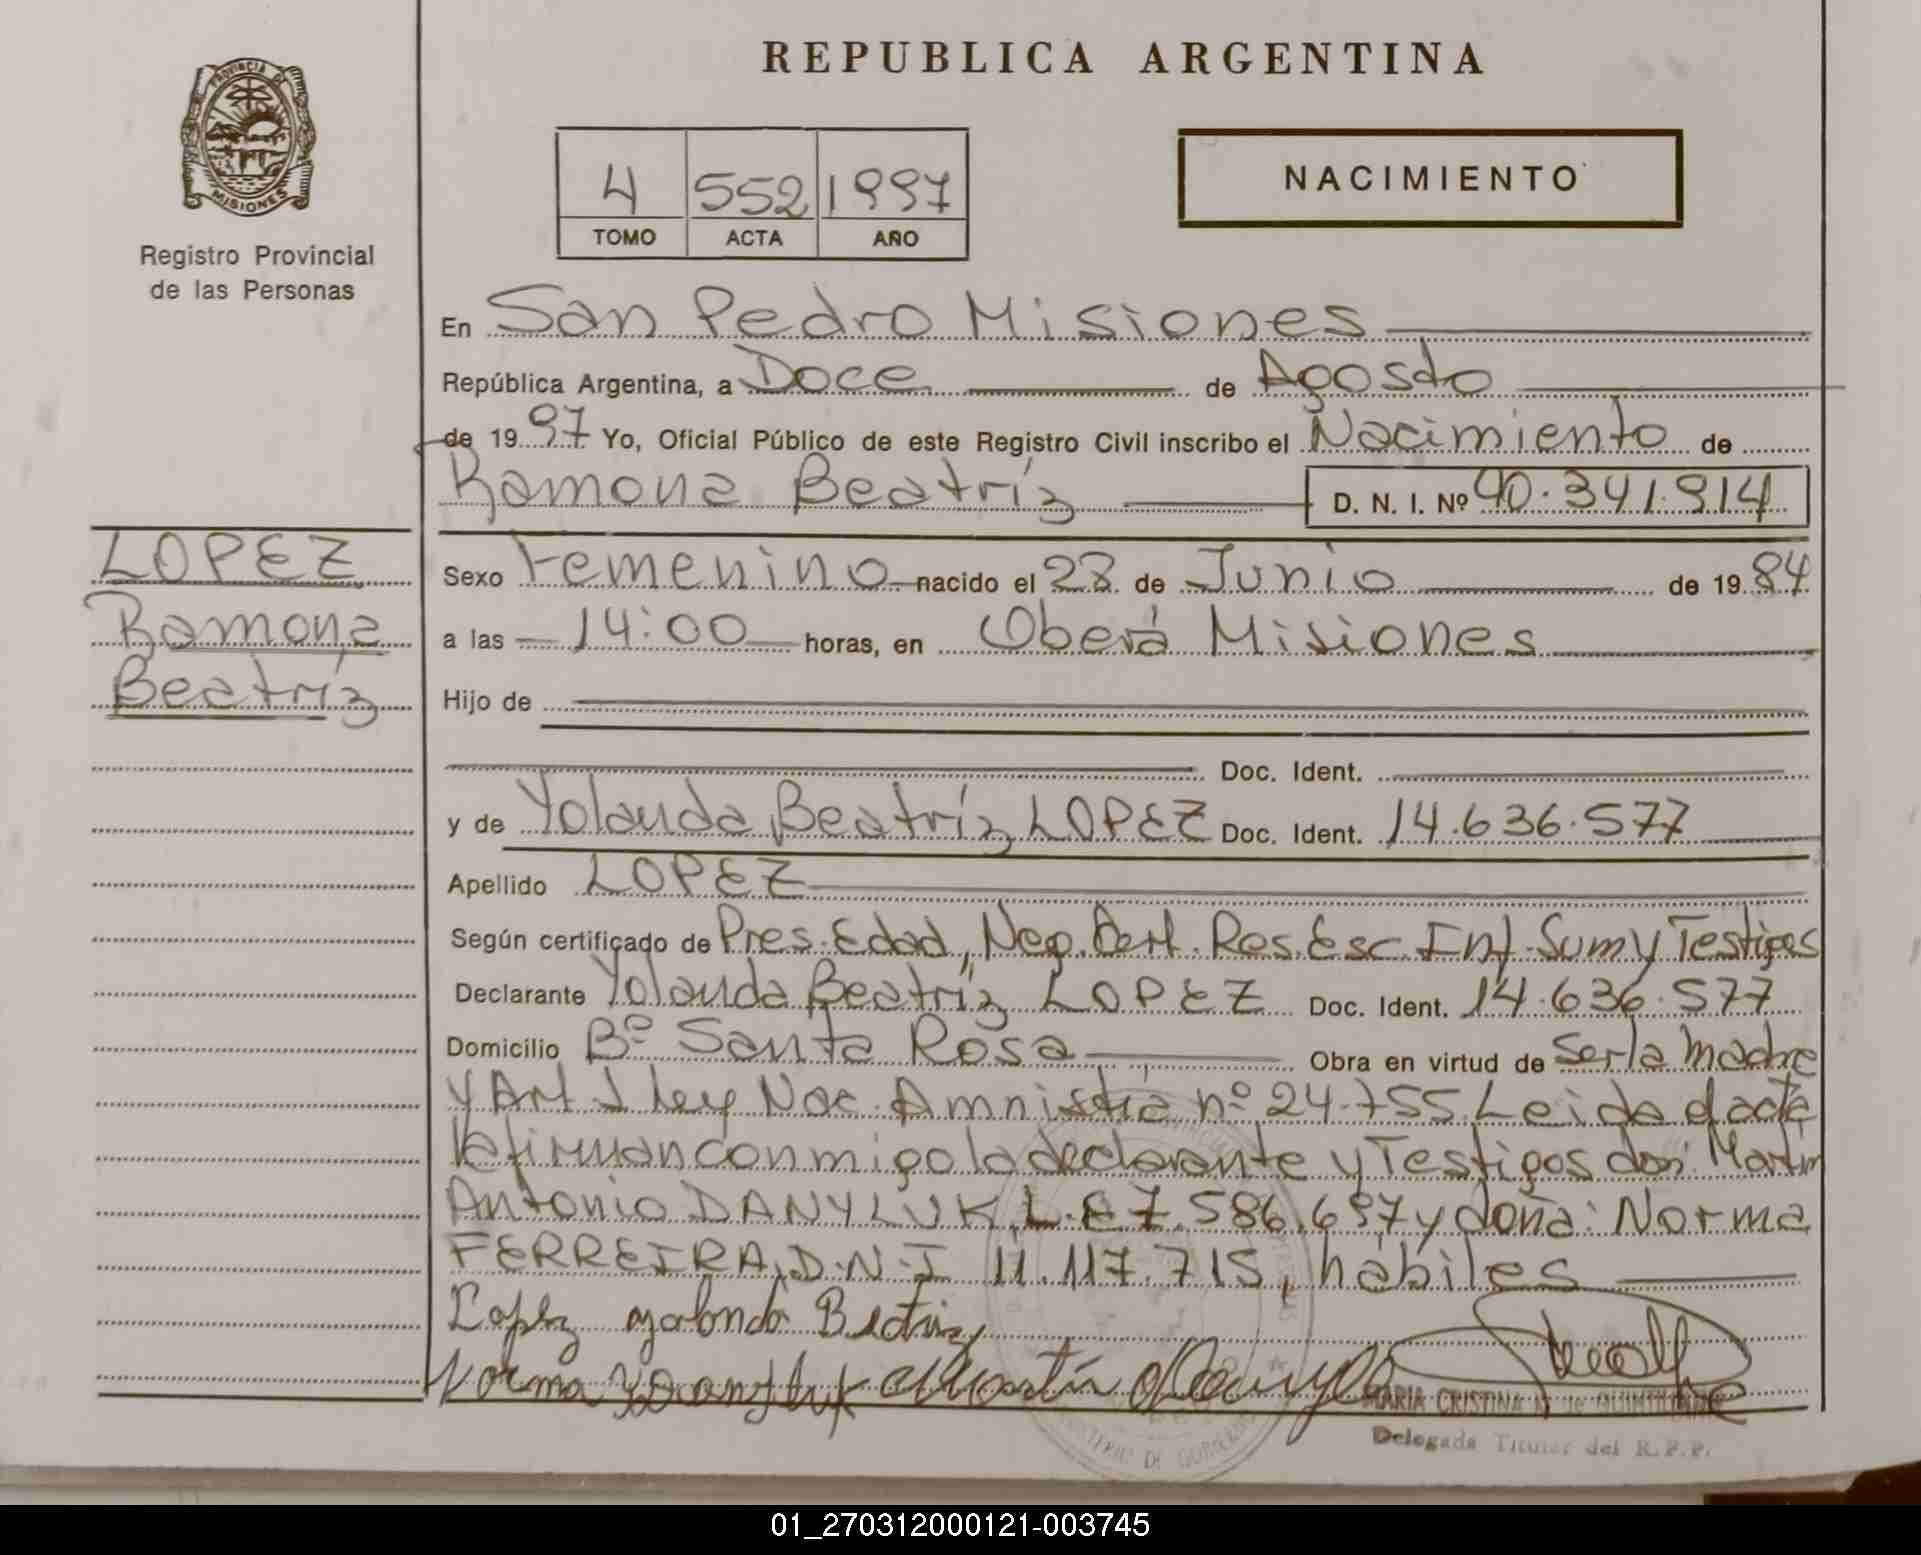 REPUBLICA ARGENTINA
PROVINCIA DE
MISIONES
Registro Provincial
de las Personas
4 552 1997
TOMO ACTA AÑO
NACIMIENTO
En San Pedro Misiones
República Argentina, a Doce de Agosto
de 1997 Yo, Oficial Público de este Registro Civil inscribo el Nacimiento de
Ramona Beatríz D. N. I. Nº 40.341.914
LOPEZ
Ramona
Beatríz
Sexo Femenino nacido el 28 de Junio de 1984
a las 14:00 horas, en Oberá Misiones
Hijo de
Doc. Ident.
y de Yolanda Beatríz LOPEZ Doc. Ident. 14.636.577
Apellido LOPEZ
Según certificado de Pres. Edad, Neg. Res. Esc. Inf. Sum y Testigos
Declarante Yolanda Beatríz LOPEZ Doc. Ident. 14.636.577
Domicilio Bº Santa Rosa Obra en virtud de Ser la madre
y Art 1 ley Nac. Amnistía nº 24.755. Leida el acta
la firman conmigo la declarante y Testigos don: Martin
Antonio DANYLUK L.E 7.586.697 y doña: Norma
FERREIRA D.N.I 11.117.715, hábiles
Lopez yolanda Beatriz
Norma
MARIA CRISTINA
Delegada Titular del R.P.P.
01_270312000121-003745